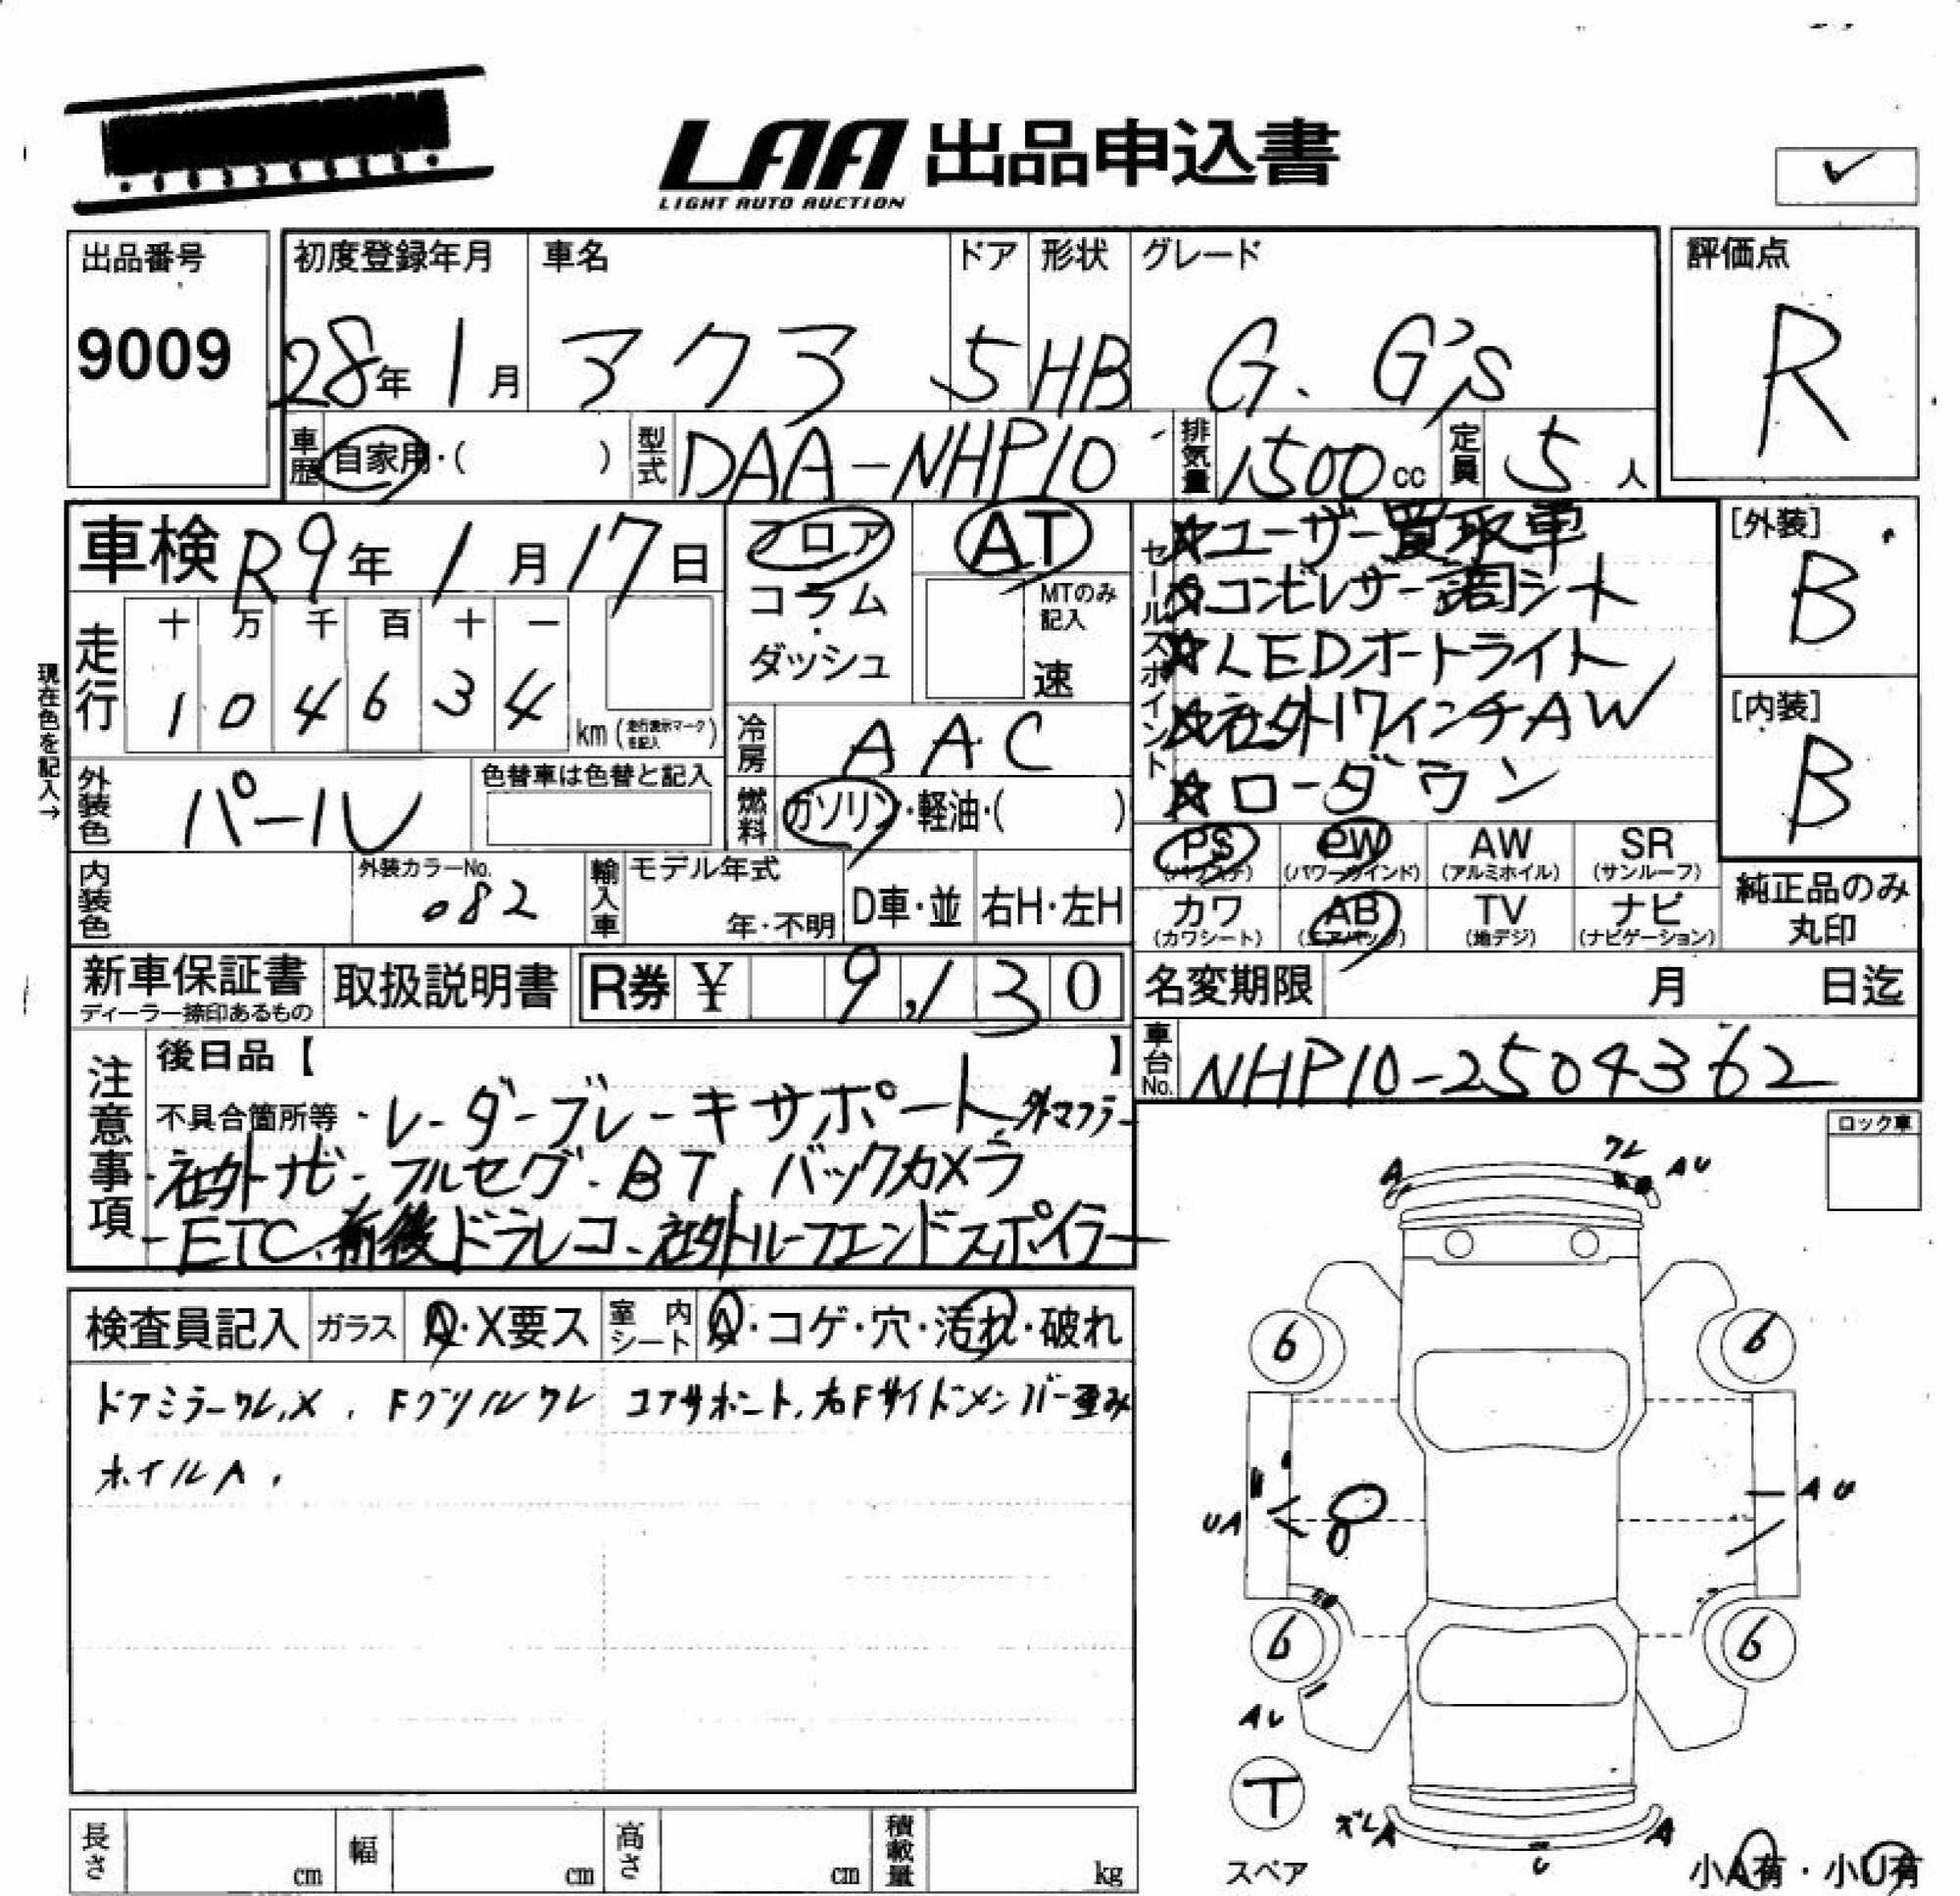 LAA 出品申込書
LIGHT AUTO AUCTION
✓
出品番号 初度登録年月 車名 ドア 形状 グレード 評価点
9009 28年 1月 アクア 5 HB G. G's R
車歴 自家用・( ) 型式 DAA-NHP10 排気量 1500cc 定員 5人
車検 R9年 1月 17日
フロア
コラム
ダッシュ
AT
MTのみ記入
速
セールスポイント
☆ユーザー買取車
☆コンビレザー調シート
☆LEDオートライト
☆社外17インチAW
☆ローダウン
[外装]
B
[内装]
B
現在色を記入→
走行 十 万 千 百 十 一
1 0 4 6 3 4 km (走行表示マークを記入)
冷房 AAC
外装色 パール 色替車は色替と記入
燃料 ガソリン・軽油・( )
PS PW AW SR
(パワステ) (パワーウインド) (アルミホイル) (サンルーフ)
カワ AB TV ナビ
(カワシート) (エアバック) (地デジ) (ナビゲーション)
純正品のみ
丸印
内装色 外装カラーNo. 082 輸入車 モデル年式 年・不明 D車・並 右H・左H
新車保証書 取扱説明書 R券 ¥ 9,130
ディーラー捺印あるもの
名変期限 月 日迄
車台No. NHP10-2504362
注意事項
後日品【 】
不具合箇所等・レーダーブレーキサポート 外マフラー
・社外ナビ、フルセグ、BT、バックカメラ
・ETC、前後ドラレコ、社外ルーフエンドスポイラー
ロック車
検査員記入 ガラス A・X要ス 室内シート A・コゲ・穴・汚れ・破れ
ドアミラーワレ,X、Fグリルワレ コアサポート、右Fサイドメンバー歪み
ホイルA、
A ワレ AU
6 6
UA AU
6 6
AU
T
スペア
ズレA U A
小A有・小U有
長さ cm 幅 cm 高さ cm 積載量 kg